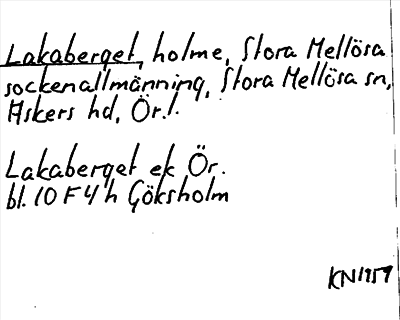 Lakaberget, holme, Stora Mellösa
sockenallmänning, Stora Mellösa sn,
Askers hd, Ör.l.
Lakaberget ek Ör.
bl. 10 F 4 h Göksholm
KN1959